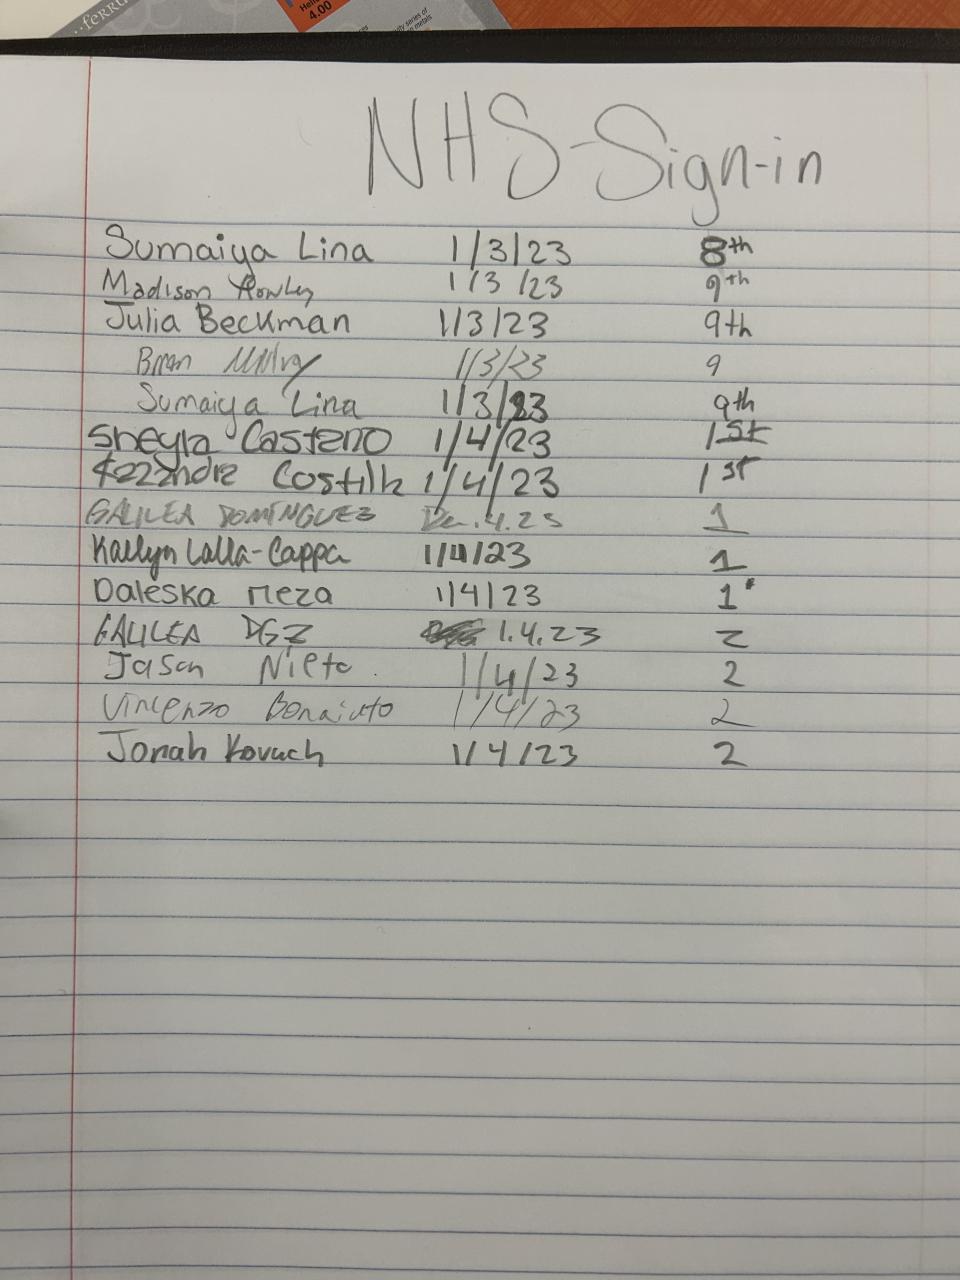 FERRU
4.00
ity series of
n metals
NHS-Sign-in
Sumaiya Lina 1/3/23 8th
Madison Rowley 1/3/23 9th
Julia Beckman 1/3/23 9th
Brian 1/3/23 9
Sumaiya Lina 1/3/23 9th
Sheyla Casteno 1/4/23 1st
Costilla 1/4/23 1st
GALILEA DOMINGUEZ 1
Kaelyn Lalla-Cappa 1/4/23 1
Daleska Meza 1/4/23 1
GALILEA DGZ 1.4.23 2
Jason Nieto 1/4/23 2
Vincenzo Bonaiuto 1/4/23 2
Jonah Kovach 1/4/23 2